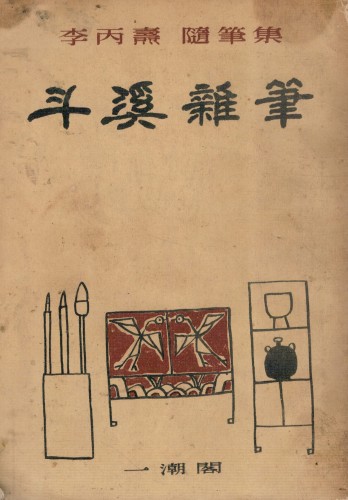 李丙燾 隨筆集
斗溪雜筆
一潮閣